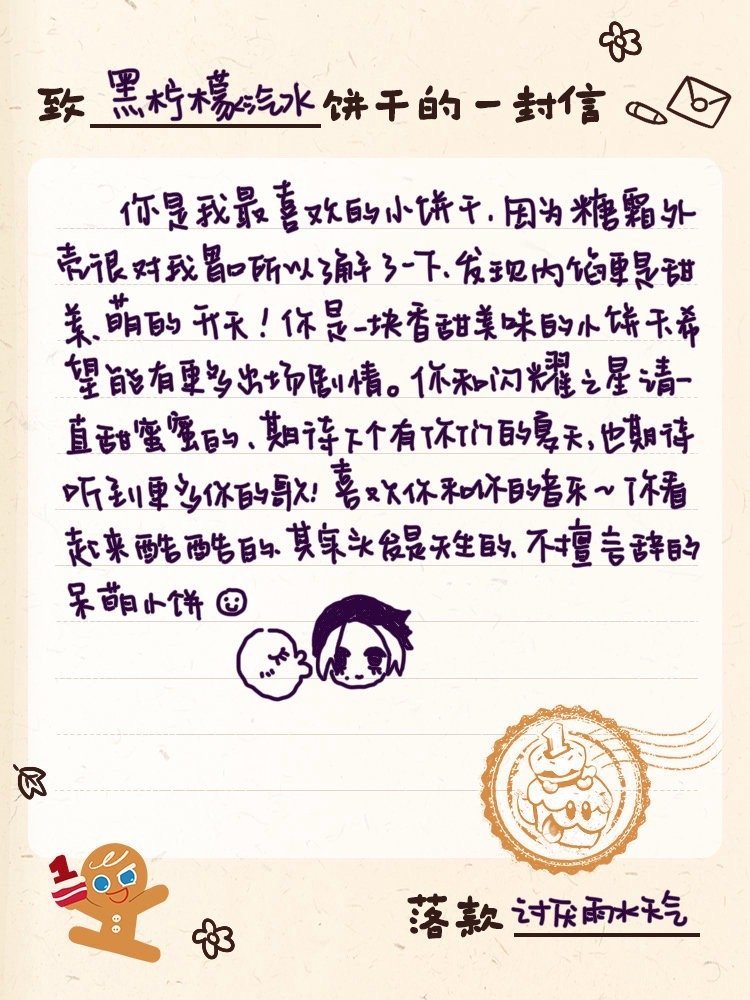 致 黑柠檬汽水 饼干的一封信
你是我最喜欢的小饼干、因为糖霜外
壳很对我胃口所以了解了一下、发现内馅更是甜
美、萌的 开天！你是一块香甜美味的小饼干、希
望能有更多出场剧情。你和闪耀之星请一
直甜蜜蜜的、期待下个有你们的夏天，也期待
听到更多你的歌！喜欢你和你的音乐～你看
起来酷酷的、其实头发是天生的、不擅言辞的
呆萌小饼
1
1
落款 讨厌雨水天气